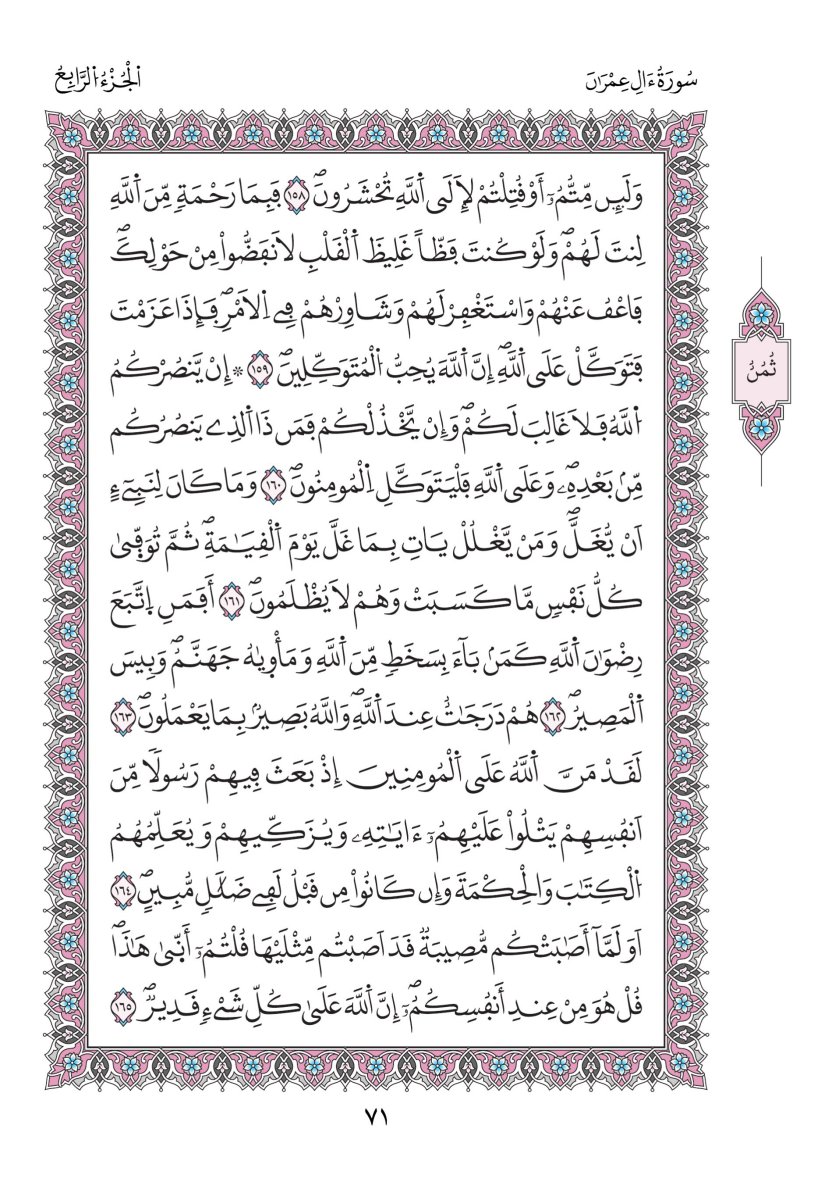 سُورَةُ ءَالِ عِمْرَٰنَ
اَ۬لْجُزْءُ اُ۬لرَّابِعُ
وَلَئِن مِّتُّمُۥٓ أَوْ قُتِلْتُمْ لَإِلَى اَ۬للَّهِ تُحْشَرُونَۖ ١٥٨ فَبِمَا رَحْمَةٖ مِّنَ اَ۬للَّهِ
لِنتَ لَهُمْۖ وَلَوْ كُنتَ فَظّاً غَلِيظَ اَ۬لْقَلْبِ لَانفَضُّواْ مِنْ حَوْلِكَۖ
فَاعْفُ عَنْهُمْ وَاسْتَغْفِرْ لَهُمْ وَشَاوِرْهُمْ فِے اِ۬لَامْرِۖ فَإِذَا عَزَمْتَ
فَتَوَكَّلْ عَلَى اَ۬للَّهِۖ إِنَّ اَ۬للَّهَ يُحِبُّ اُ۬لْمُتَوَكِّلِينَۖ ١٥٩ * إِنْ يَّنصُرْكُمُ
اُ۬للَّهُ فَلَا غَالِبَ لَكُمْۖ وَإِنْ يَّخْذُلْكُمْ فَمَن ذَا اَ۬لذِے يَنصُرُكُم
مِّنۢ بَعْدِهِۦۖ وَعَلَى اَ۬للَّهِ فَلْيَتَوَكَّلِ اِ۬لْمُومِنُونَۖ ١٦٠ وَمَا كَانَ لِنَبِےٓءٍ
اَنْ يُّغَلَّۖ وَمَنْ يَّغْلُلْ يَاتِ بِمَا غَلَّ يَوْمَ اَ۬لْقِيَٰمَةِۖ ثُمَّ تُوَفّ۪يٰ
كُلُّ نَفْسٖ مَّا كَسَبَتْ وَهُمْ لَا يُظْلَمُونَۖ ١٦١ أَفَمَنِ اِ۪تَّبَعَ
رِضْوَٰنَ اَ۬للَّهِ كَمَنۢ بَآءَ بِسَخَطٖ مِّنَ اَ۬للَّهِ وَمَأْو۪يٰهُ جَهَنَّمُۖ وَبِيسَ
اَ۬لْمَصِيرُۖ ١٦٢ هُمْ دَرَجَٰتٌ عِندَ اَ۬للَّهِۖ وَاللَّهُ بَصِيرُۢ بِمَا يَعْمَلُونَۖ ١٦٣
لَقَدْ مَنَّ اَ۬للَّهُ عَلَى اَ۬لْمُومِنِينَ إِذْ بَعَثَ فِيهِمْ رَسُولاٗ مِّنَ
اَنفُسِهِمْ يَتْلُواْ عَلَيْهِمُۥٓ ءَايَٰتِهِۦ وَيُزَكِّيهِمْ وَيُعَلِّمُهُمُ
اُ۬لْكِتَٰبَ وَالْحِكْمَةَ وَإِن كَانُواْ مِن قَبْلُ لَفِے ضَلَٰلٖ مُّبِينٍۖ ١٦٤
اَوَلَمَّآ أَصَٰبَتْكُم مُّصِيبَةٞ قَدَ اَصَبْتُم مِّثْلَيْهَا قُلْتُمُۥٓ أَنّ۪يٰ هَٰذَاۖ
قُلْ هُوَ مِنْ عِندِ أَنفُسِكُمُۥٓۖ إِنَّ اَ۬للَّهَ عَلَىٰ كُلِّ شَےْءٖ قَدِيرٞۖ ١٦٥
ثُمُنُ
٧١